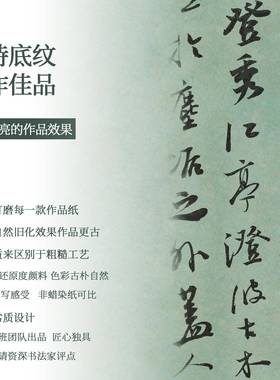 特底纹
作佳品
亮的作品效果
打磨每一款作品纸
自然旧化效果作品更古
质来区别于粗糙工艺
还原度颜料 色彩古朴自然
写感受 非蜡染纸可比
质设计
班团队出品 匠心独具
请资深书法家评点
登秀江亭澄波古木
於塵垢之外蓋人